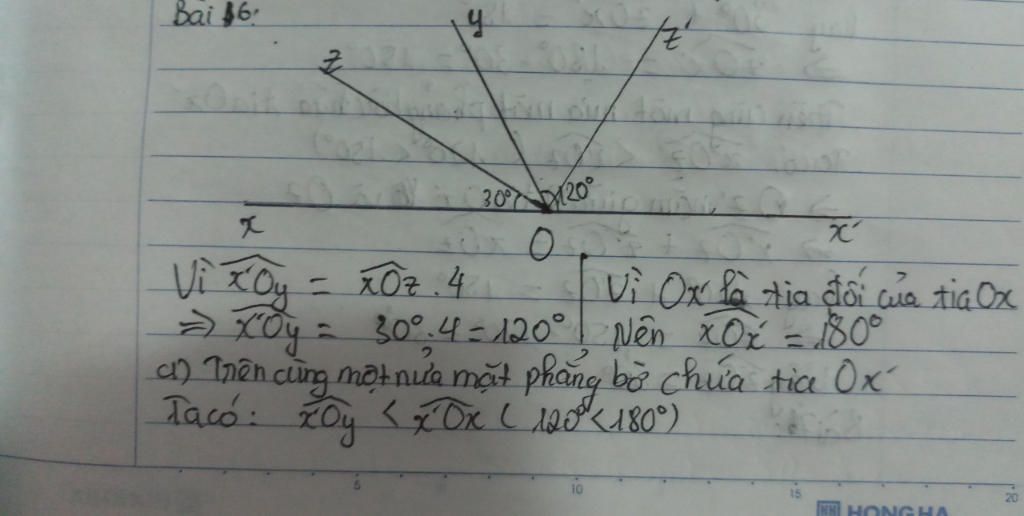 Bài 16:
z
y
z'
30°
120°
x
O
x'
Vì x'Oy = xOz . 4
=> x'Oy = 30° . 4 = 120°
Vì Ox' là tia đối của tia Ox
Nên xOx' = 180°
a) Trên cùng một nửa mặt phẳng bờ chứa tia Ox'
Ta có: x'Oy < x'Ox ( 120° < 180° )
5 10 15 20
HONG HA